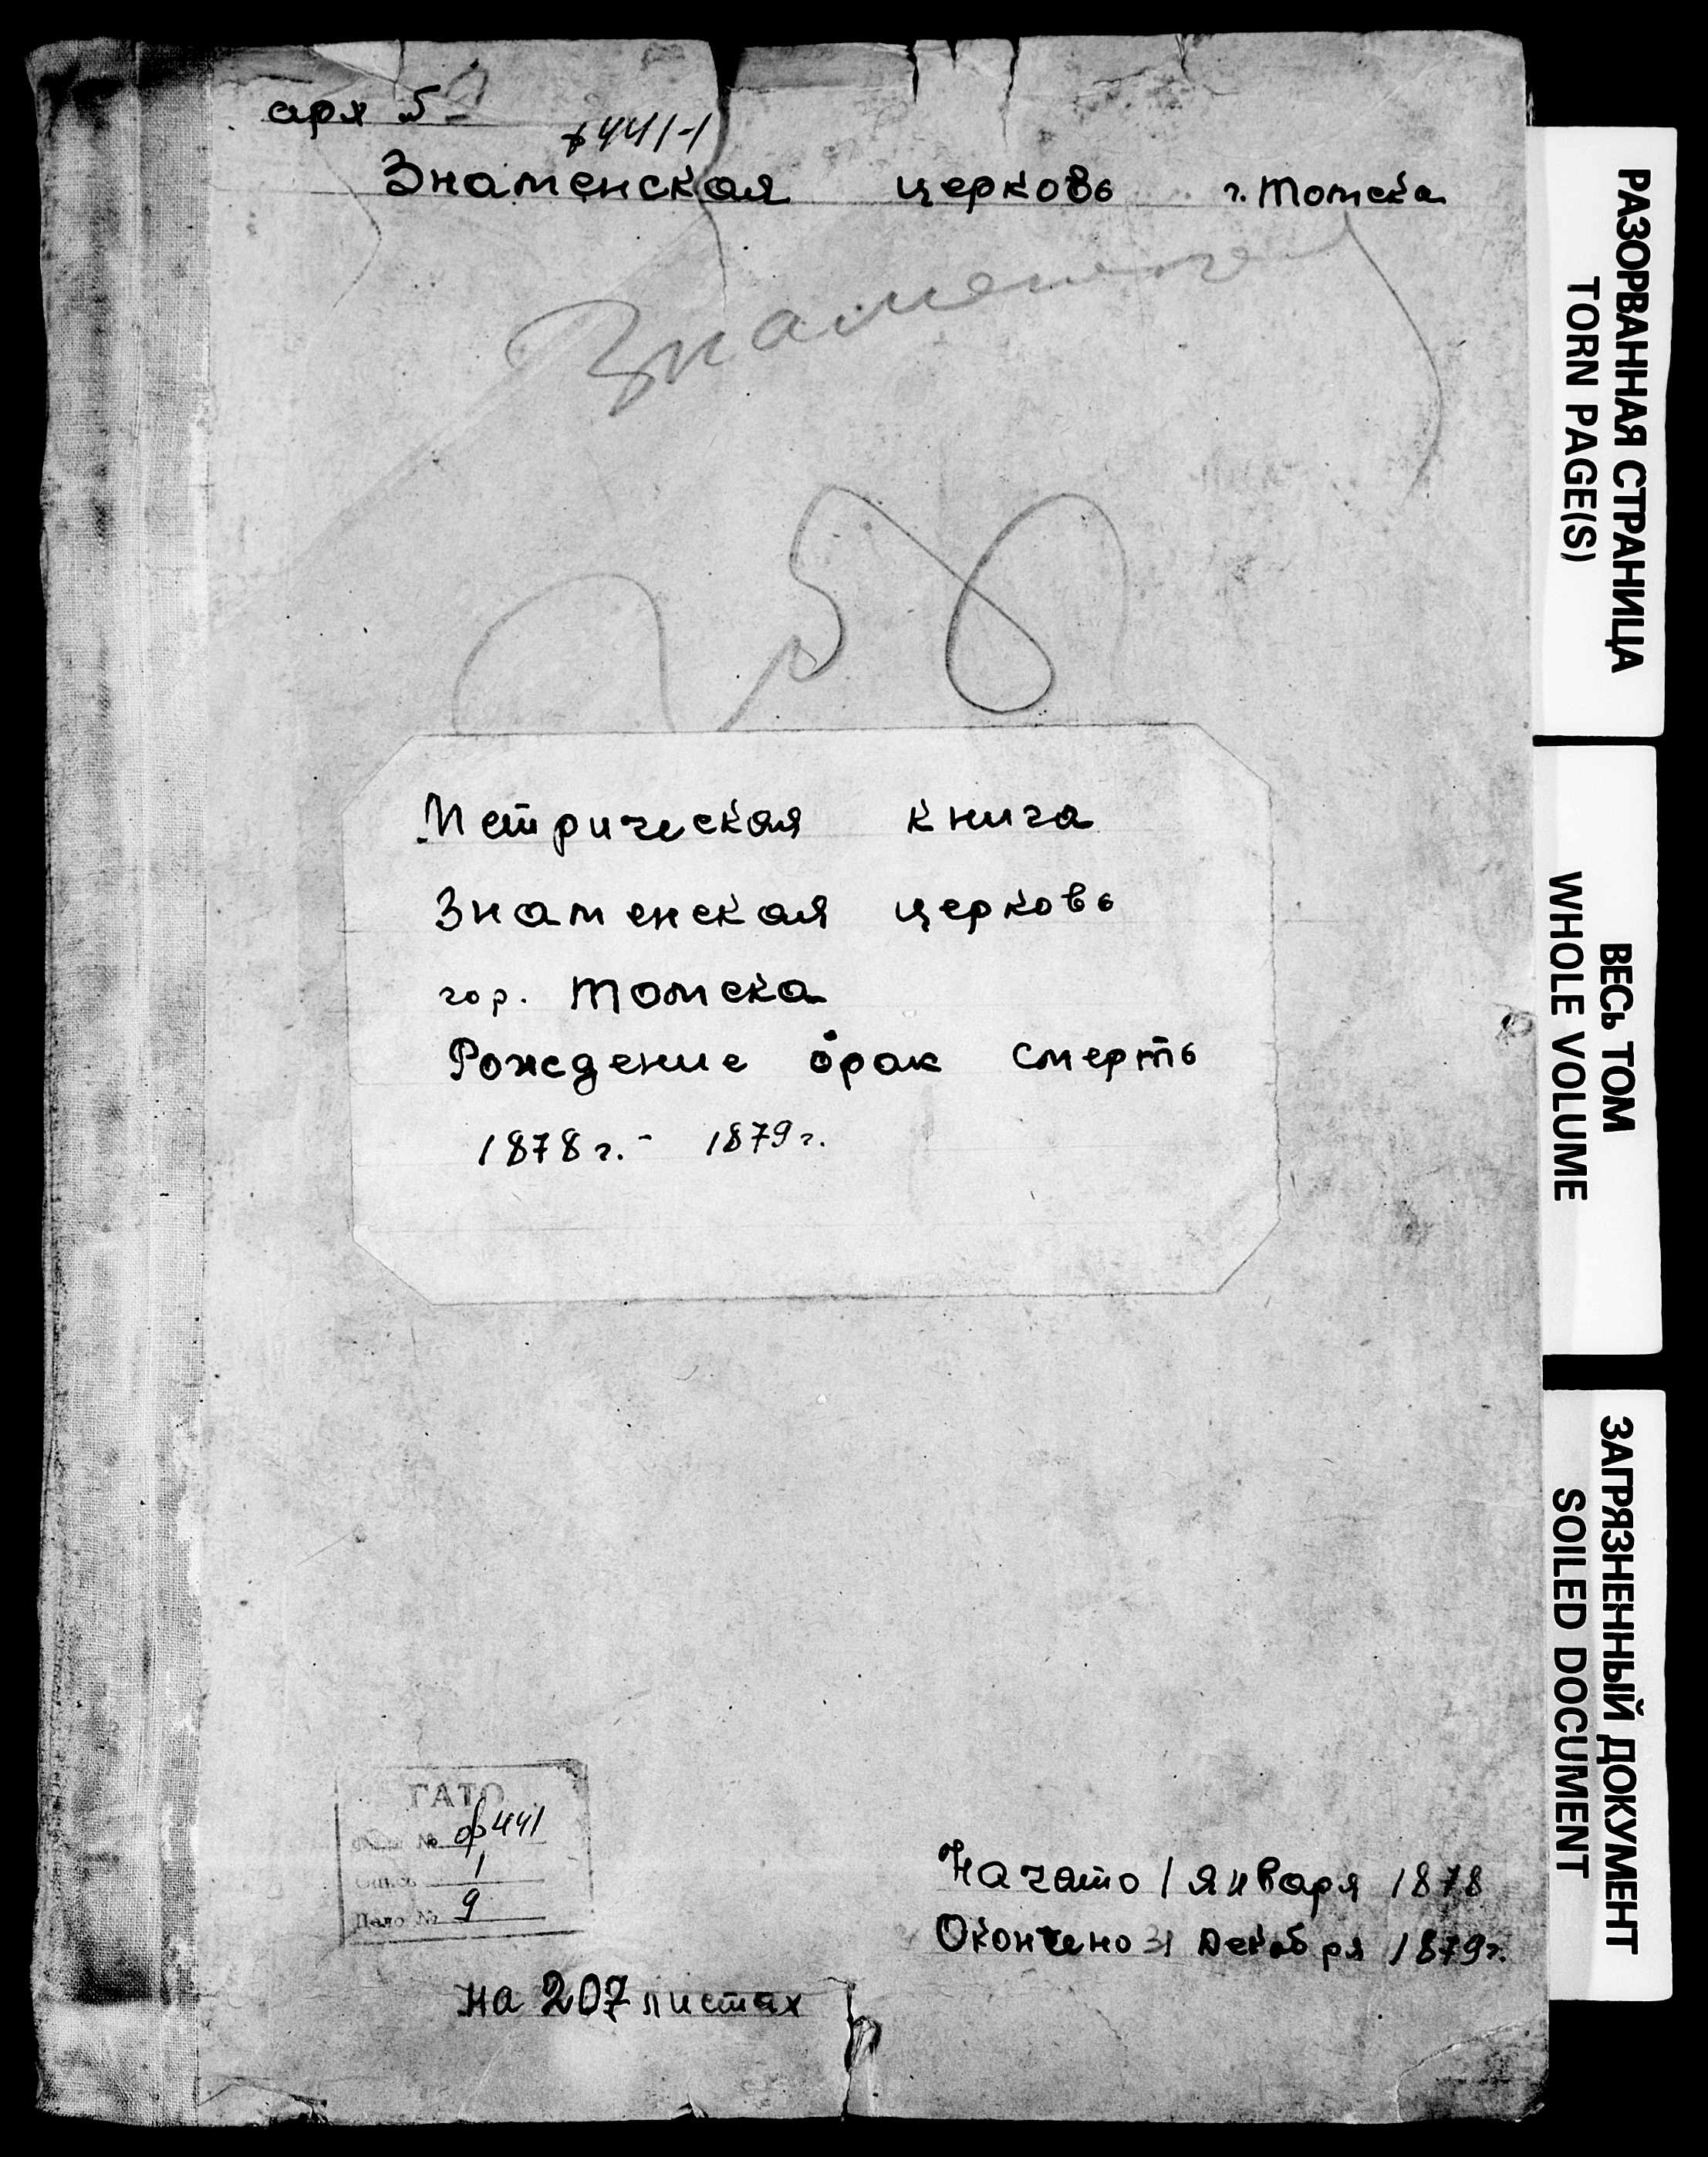 арх 5
ф 441-1
Знаменская церковь г. Томска
Знаменская
Метрическая книга
Знаменская церковь
гор. Томска
Рождение брак смерть
1878 г. - 1879 г.
ГАТО
№ ф 441
Опись 1
Дело № 9
Начато 1 января 1878
Окончено 31 декабря 1879 г.
на 207 листах
РАЗОРВАННАЯ СТРАНИЦА
TORN PAGE(S)
ВЕСЬ ТОМ
WHOLE VOLUME
ЗАГРЯЗНЕННЫЙ ДОКУМЕНТ
SOILED DOCUMENT